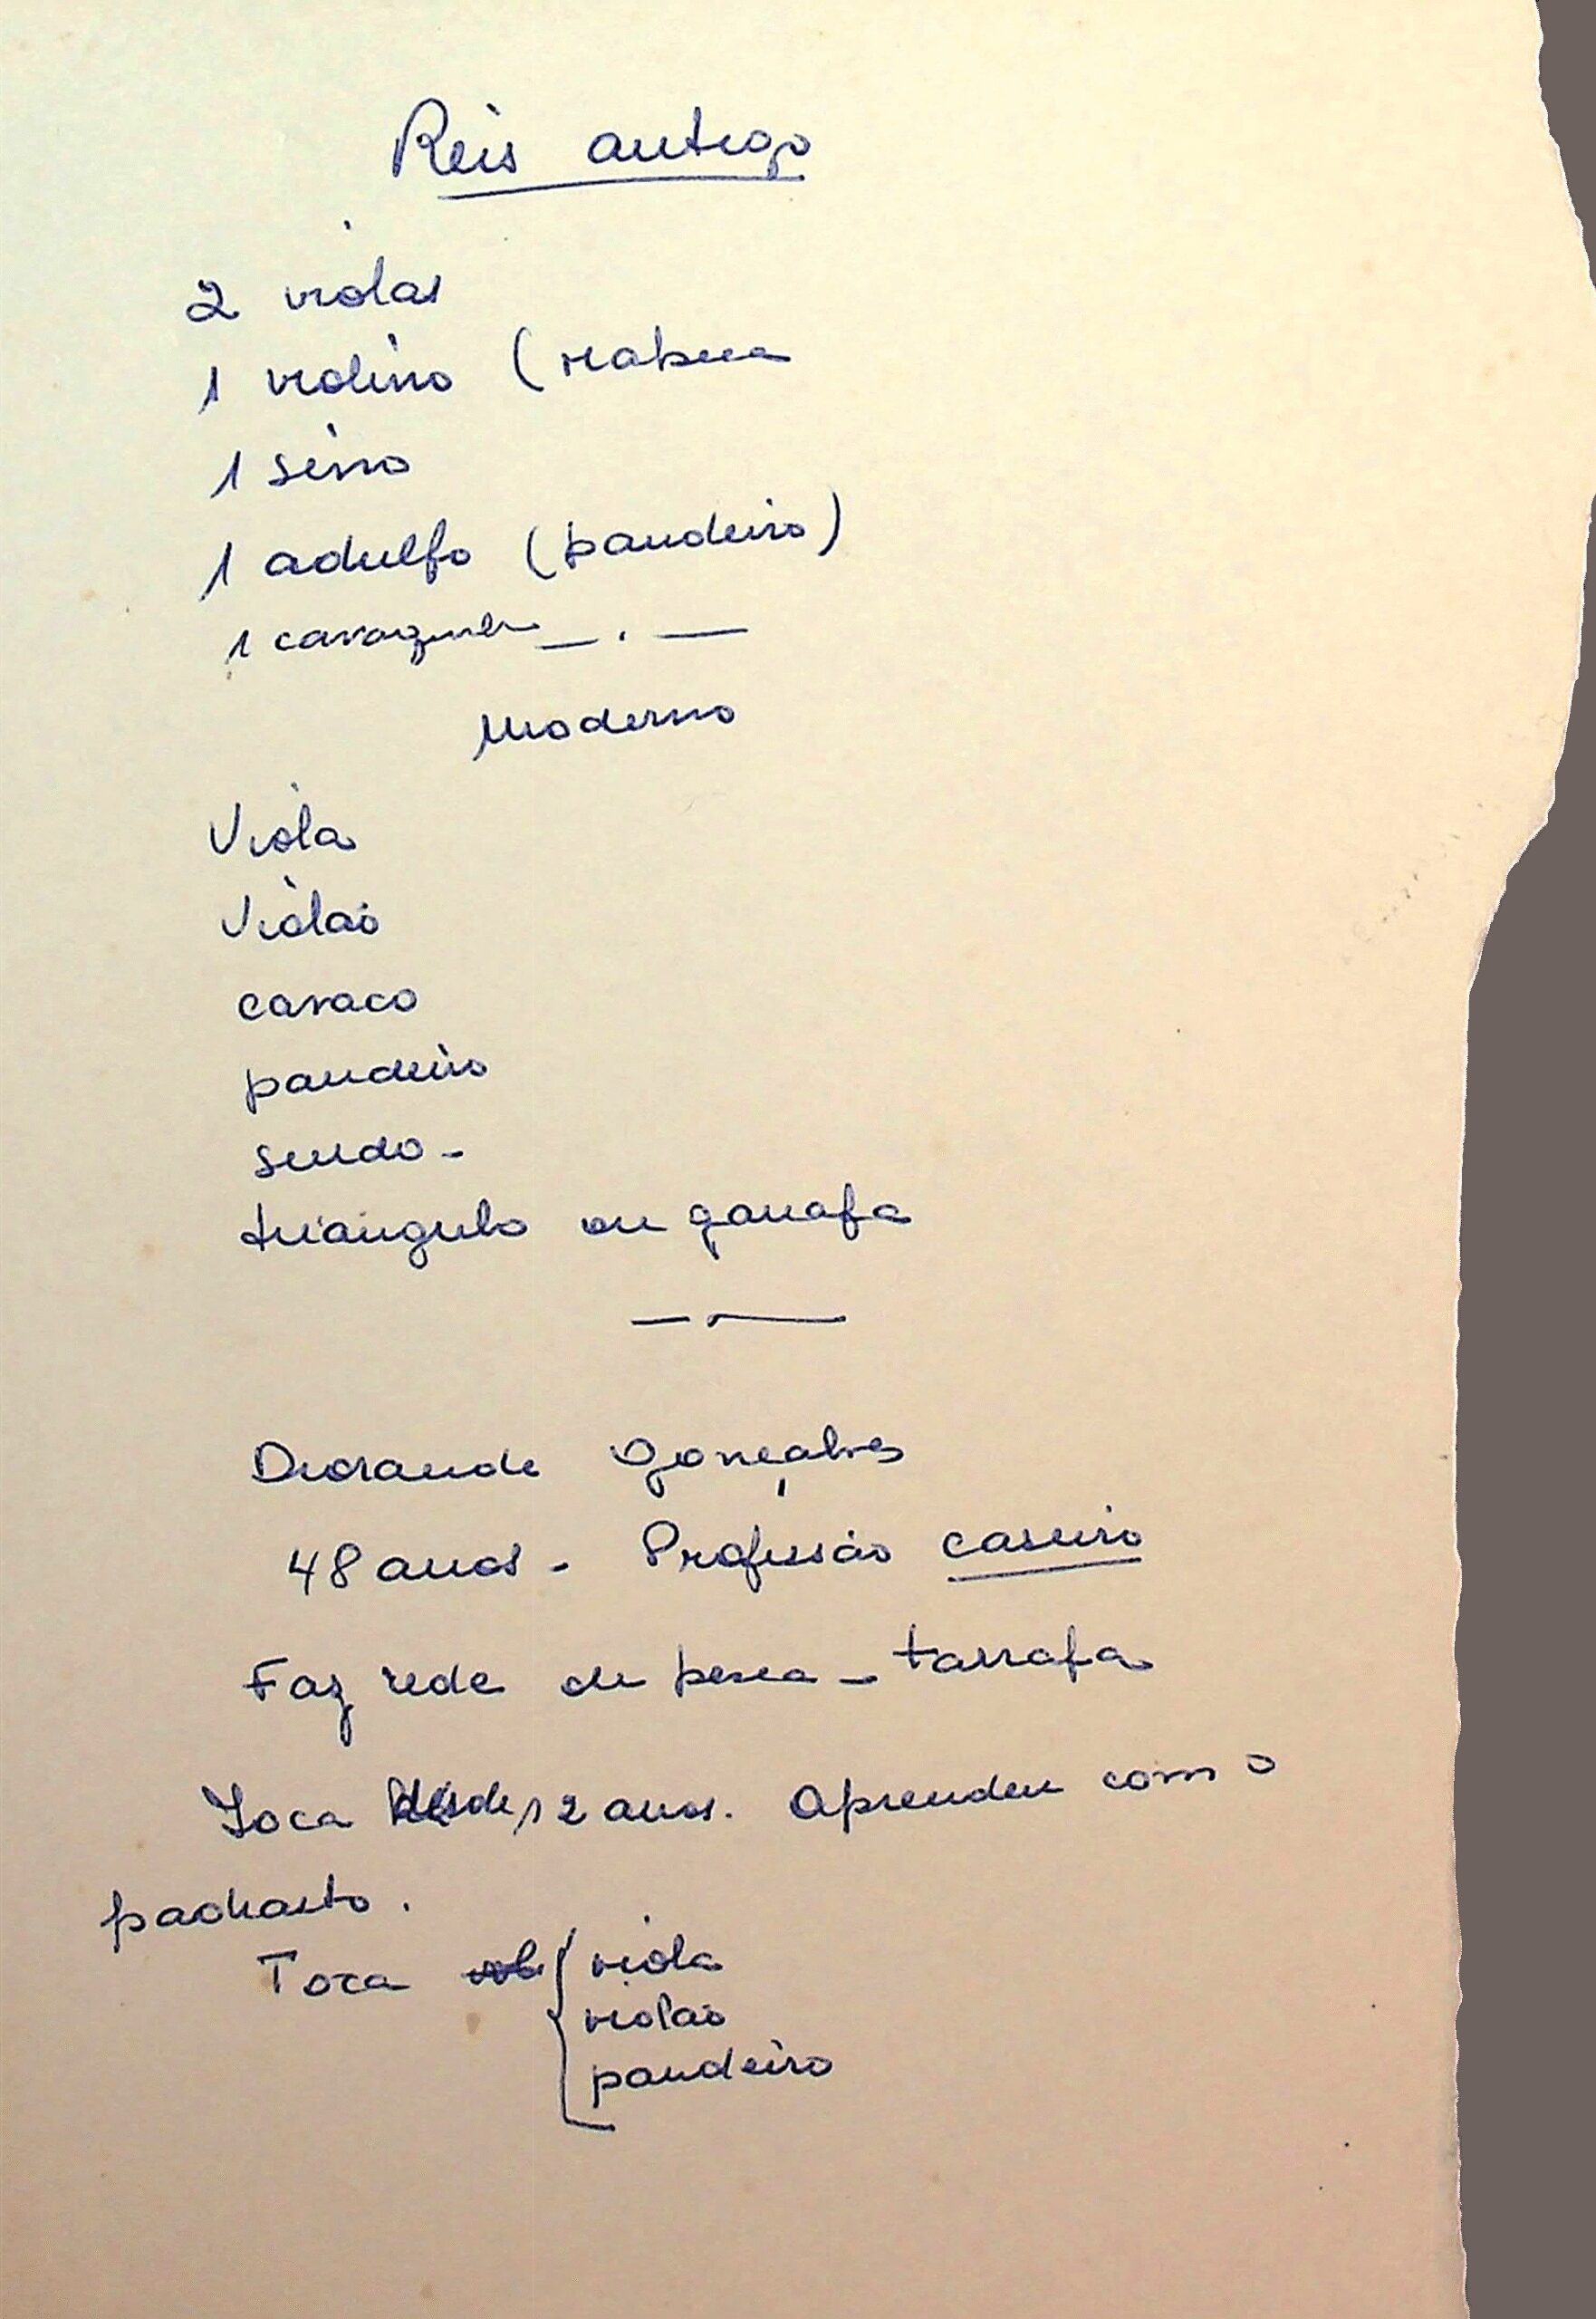 Reis antigo
2 violas
1 violino (rabeca
1 sino
1 adulfo (pandeiro)
1 cavaquinho
Moderno
Viola
Violão
cavaco
pandeiro
surdo -
triangulo ou garrafa
Gonçalves
48 anos - Profissão caseiro
Faz rede de pesca - tarrafa
Toca desde 12 anos. Aprendeu com o
padrasto.
Toca { viola
violão
pandeiro